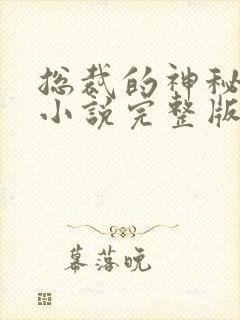 总裁的神秘
小说完整版
幕落晚